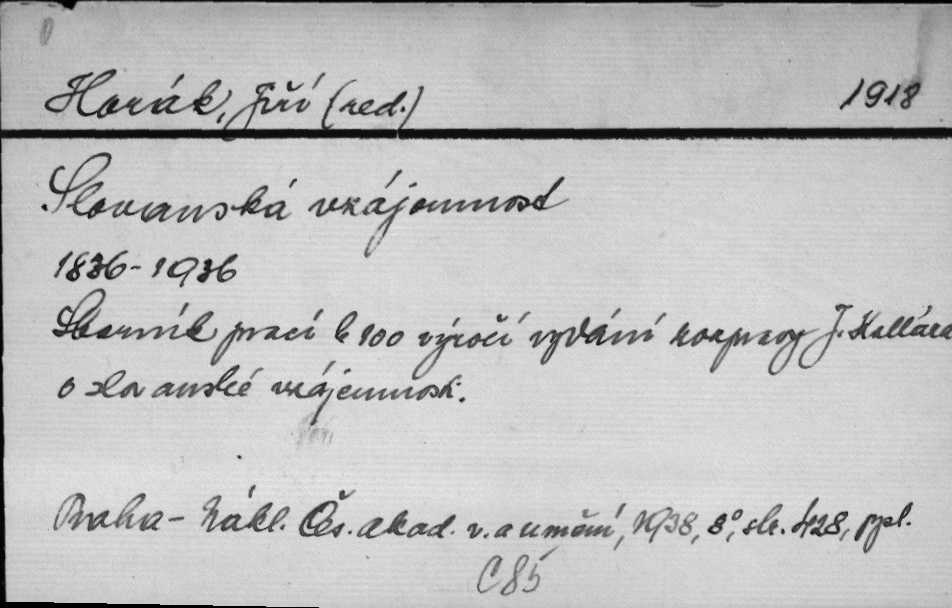 Horák, Jiří (red.) 1918
Slovanská vzájemnost
1836-1936
Sborník prací k 100 výročí vydání rozpravy J. Kollára
o slovanské vzájemnosti.
Praha - Nákl. Čes. akad. v. a umění, 1938, 8°, str. 428, ppl.
C85